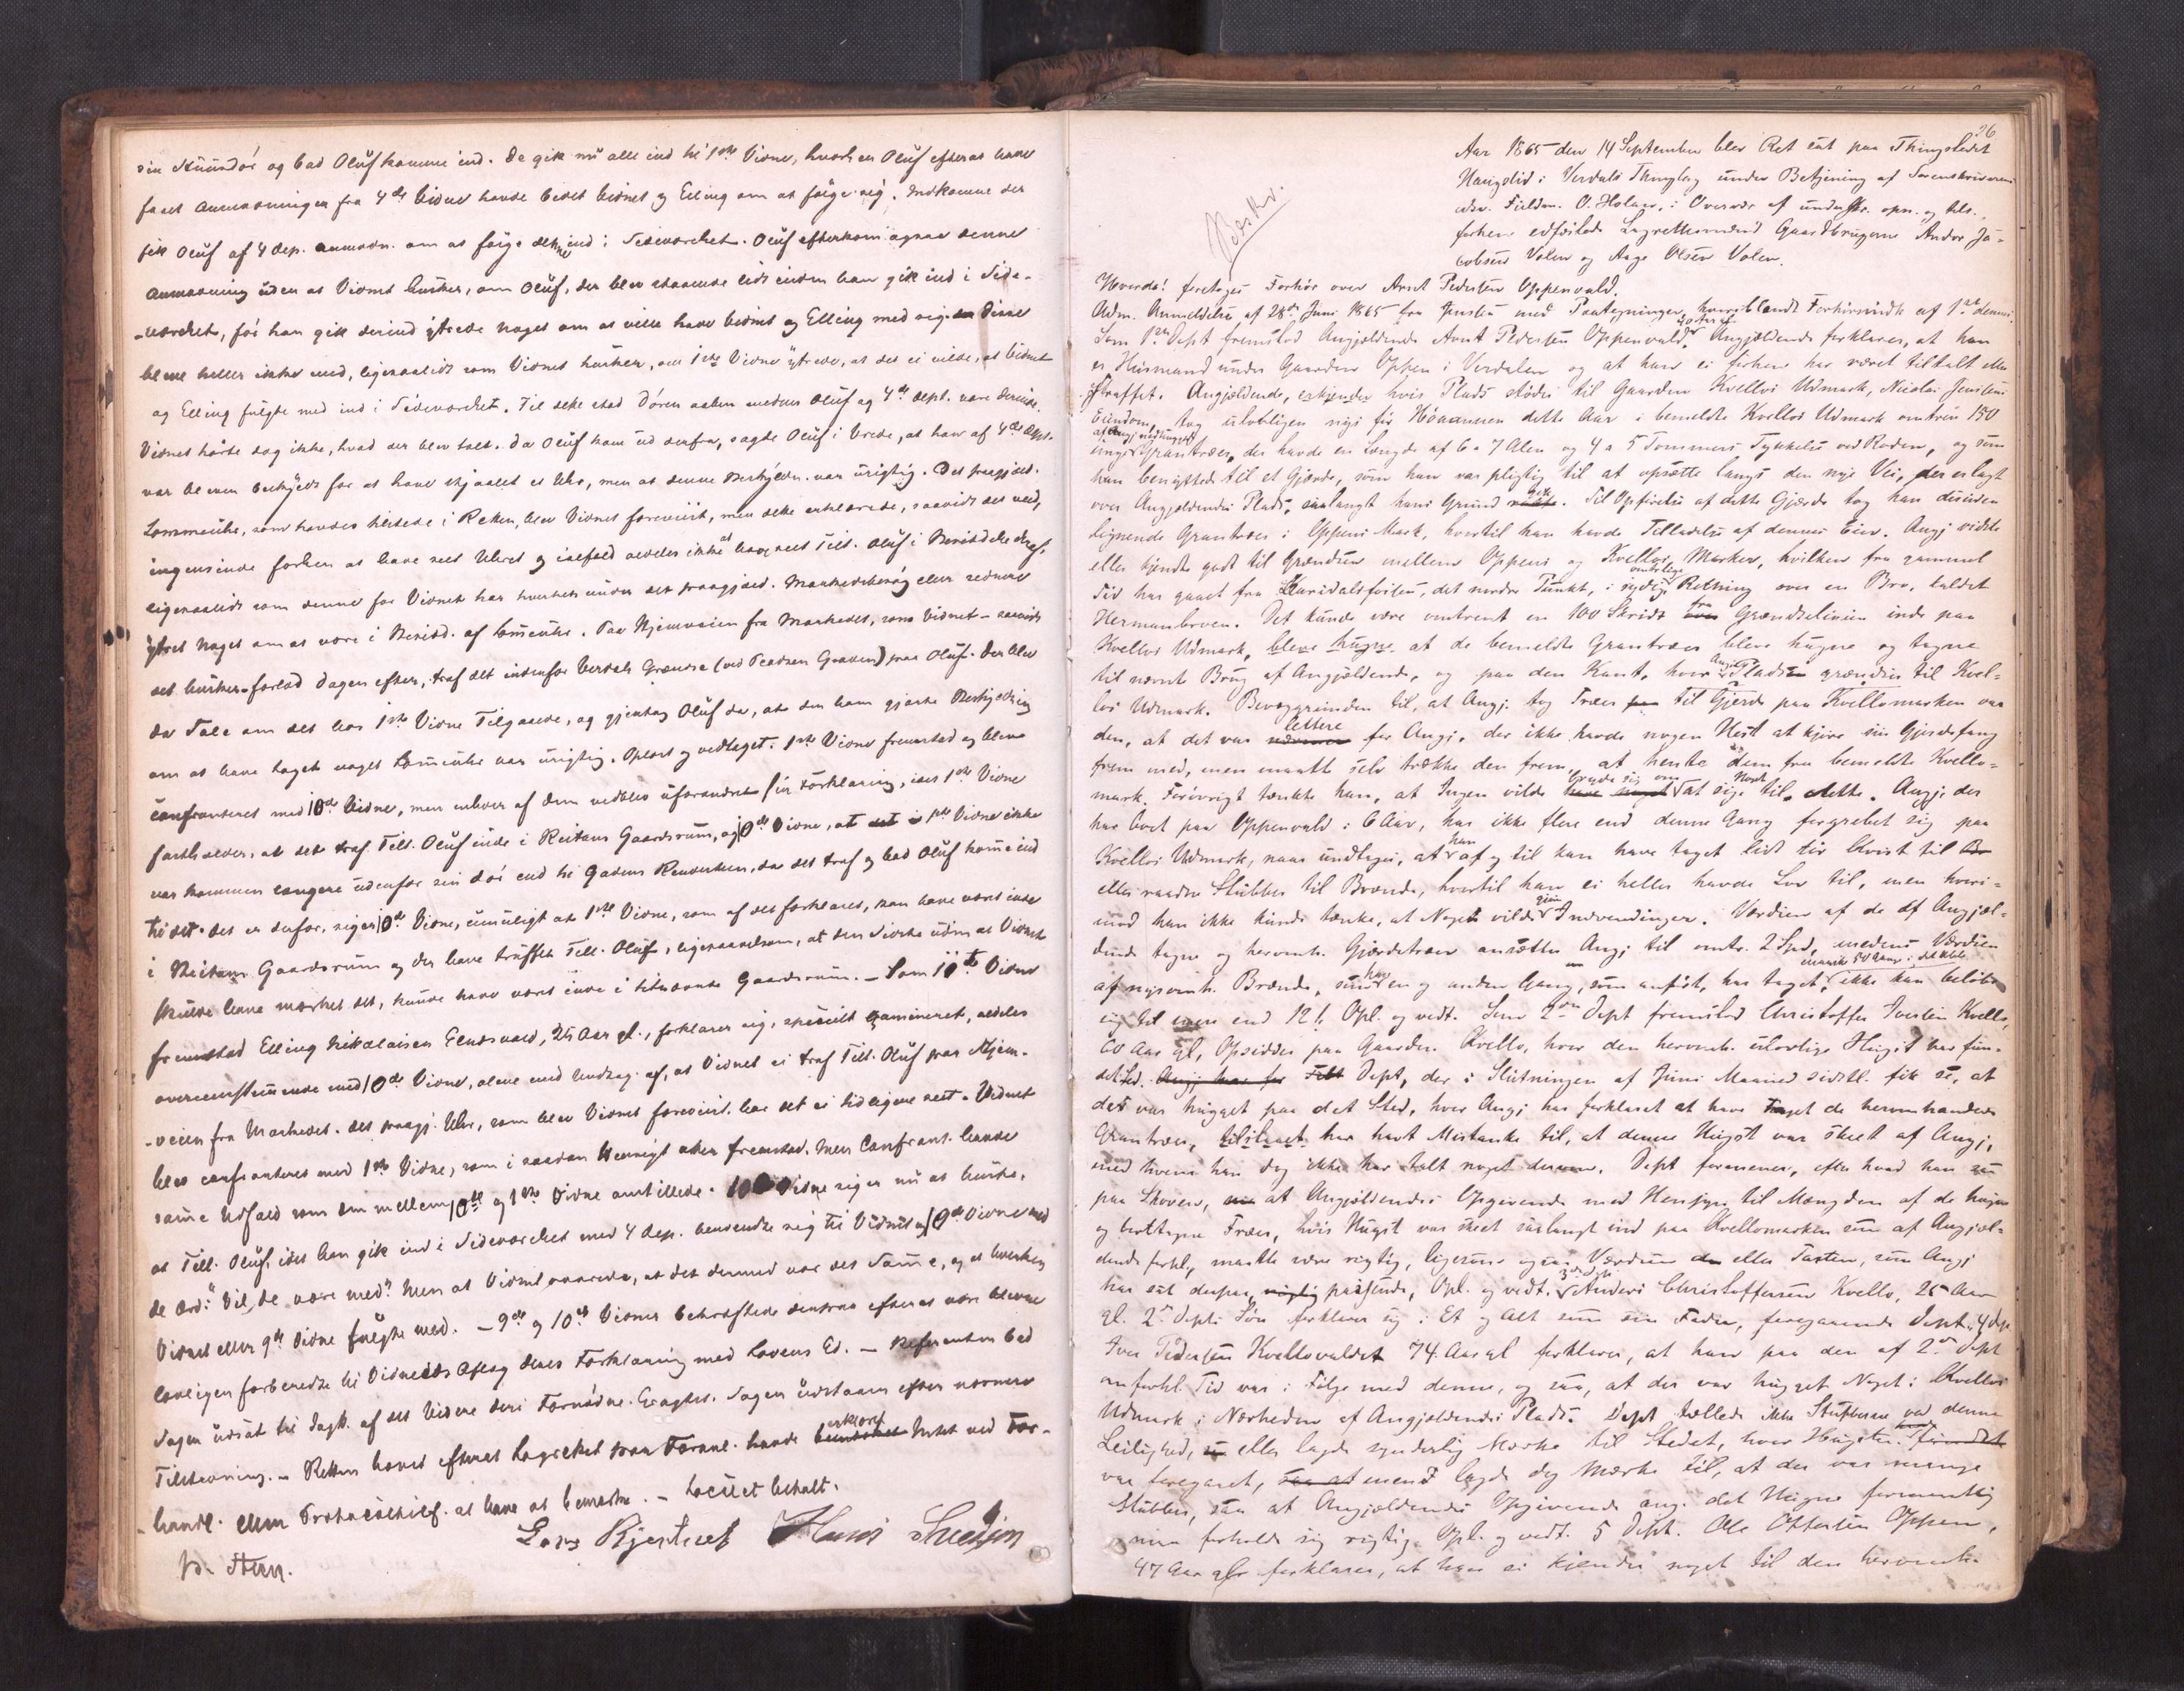 sin Stuedør og bad Oluf komme ind. De gik nu alle ind til 1ste Vidne, hvorhen Oluf efter at have
faaet Anmodningen fra 4de Vidne havde bedet Vidnet og Elling om at følge sig. Indkomne der
fik Oluf af 4 Dep. Anmodn. om at følge denne ind i Sideværelset. Oluf efterkom ogsaa denne
Anmodning uden at Vidnet husker, om Oluf, der blev staaende lidt inden han gik ind i Side-
-værelset, før han gik derind ytrede noget om at ville have Vidnet og Elling med sig. Disse
bleve heller ikke med, ligesaalidt som Vidnet husker, om 1ste Vidne ytrede, at det ei vilde, at Vidnet
og Elling fulgte med ind i Sideværelset. Til dette stod Døren aaben medens Oluf og 4de Dept. vare derinde.
Vidnet hørte dog ikke, hvad der blev talt. Da Oluf kom ud derfra, sagde Oluf i Vrede, at han af 4de Dept.
var bleven beskyldt for at have stjaalet et Uhr, men at denne Beskyldn. var urigtig. Det paagjæld.
Lommeuhr, som havdes tilstede i Retten, blev Vidnet foreviist, men dette erklærede, saavidt det veed,
ingensinde forhen at have seet Uhret og ialfald aldeles ikke at have seet Tilt. Oluf i Besiddelse deraf,
ligesaalidt som denne for Vidnet har hverken under det paagjæld. Markedsbesøg eller sednere
ytret Noget om at være i Besidd. af Lomeuhr. Paa Hjemveien fra Markedet, som Vidnet - saavidt
det husker - forlod Dagen efter, traf det indenfor Verdals Grændse (ved Pladsen Graven) paa Oluf. Der blev
da Tale om det hos 1ste Vidne Tilgaaede, og gjentog Oluf da, at den ham gjorte Beskyldning
om at have taget noget Lomeuhr var urigtig. Oplæst og vedtaget. 1ste Vidne fremstod og blev
confronteret med 10de Vidne, men enhver af dem vedblev uforandret sin Forklaring, idet 1ste Vidne
fastholder, at det traf Tilt. Oluf inde i Reitans Gaardsrum, og 10de Vidne, at 1ste Vidne ikke
var kommen længere udenfor sin Dør end til Gadens Rendesteen, da det traf og bad Oluf kome ind
til det. Det er derfor, siger 10de Vidne, umuligt at 1ste Vidne, som af det forklaret, kan have været inde
i Reitans Gaardsrum og der have truffet Tilt. Oluf, ligesaavelsom, at den Sidste uden at Vidnet
skulde have mærket det, kunde have været inde i bemeldte Gaardsrum. - Som 11te Vidne
fremstod Elling Nikolaisen Elnesvald, 25 Aar gl., forklarer sig, specielt examineret, aldeles
overeensstemmende med 10de Vidne, alene med Undtag. af, at Vidnet ei traf Tilt. Oluf paa Hjem-
-veien fra Markedet. Det paagj. Uhr, som blev Vidnet foreviist, har det ei tidligere seet. Vidnet
blev confronteret med 1ste Vidne, som i saadan Hensigt atter fremstod. Men Confront. havde
same Udfald som den mellem 10de og 1ste Vidne anstillede. Vidne siger nu at huske,
at Tilt. Oluf, idet han gik ind i Sideværelset med 4 Dep. henvendte sig til Vidnet og 10de Vidne med
de Ord: "Vil De være med?" Men at Vidnet svarede, at det dermed var det Same, og at hverken
Vidnet eller 9de Vidne fulgte med. - 9de og 10de Vidner bekræftede derpaa efterat være blevne
lovligen forberedte til Vidneeds Aflæg deres Forklaring med Lovens Ed. - Referenten bad
Sagen udsat til Indk. af det Videre deri Fornødne. Eragtet. Sagen udstaaer efter nærmere
Tilstevning. - Retten hævet efterat Lagrettet paa Foranl. havde erklæret Intet ved For-
-handl. eller Protocoltilf. at have at bemærke. - Locuet betalt.
Lars Kjesbuet Hans Sneeggen
P. Steen.
26
Aar 1865 den 14 September blev Ret sat paa Thingstedet
Haugslid i Verdals Thinglag under Betjening af Sorenskriverens
edsv. Fuldm. O. Holaas, i Overvær af underskr. opn. og tils.,
forhen edfæstede Lagrettesmænd Gaardbrugerne Andor Ja-
cobsen Volen og Aage Olsen Volen.
Beskr.
Hvorda! foretoges Forhør over Arnt Pedersen Oppenvald.
Adm. Anmeldelse af 28de Juni 1865 fra Jensen med Paategninger, hvoriblandt Forhørsindk af 1ste dennes.
Som 1ste Dept fremstod Angjældende Arnt Pedersen Oppenvald, 40 Aar gl. Angjældende forklarer, at han
er Huusmand under Gaarden Oppen i Verdalen og at han ei forhen har været tiltalt eller
straffet. Angjældende, erkjender hvis Plads støder til Gaarden Kvellos Udmark, Nicolai Jensens
Eiendom, tog ulovligen nys før Høaannen dette Aar i bemeldte Kvellos Udmark omtrent 150
unge af Angj nedhuggede Grantræer, der havde en Længde af 6 a 7 Alen og 4 a 5 Tommers Tykkelse ved Roden, og som
han benyttede til et Gjærde, som han var pligtig til at opsætte langs den nye Vei, der er lagt
over Angjældendes Plads, saalangt hans Grund gik. Til Opførelse af dette Gjærde tog han desuden
lignende Grantræer i Oppens Mark, hvortil han havde Tilladelse af dennes Eier. Angj vidste
eller kjendte godt til Grændsen mellem Oppens og Kvellos Marker, hvilken fra gammel
Tid har gaaet fra Karidalsfossen, det nordre Punkt, i sydøstlige Retning over en Bro, kaldet
Hermanbroen. Det kunde være omtrent en 100 Skridt fra Grændselinien inde paa
Kvellos Udmark, bleve hugne at de bemeldte Grantræer bleve hugne og tagne
til nævnt Brug af Angjældende, og paa den Kant, hvor Angjs Plads grændser til Kvel-
los Udmark. Bevæggrunden til, at Angj. tog Træer til Gjerde paa Kvellomarken var
den, at det var lettere for Angj., der ikke havde nogen Hest at kjøre sin Gjærdefang
frem med, men maatte selv trække den frem, at hente dem fra bemeldte Kvello-
mark. Forøvrigt tænkte han, at Ingen vilde bryde sig om at sige Noget til dette. Angj. der
har boet paa Oppenvald i 6 Aar, har ikke flere end denne Gang forgrebet sig paa
Kvellos Udmark, naar undtages, at han af og til kan have taget lidt tør Kvist til
eller raadne Stubber til Brænde, hvortil han ei heller havde Lov til, men hvori-
mod han ikke kunde tænke, at Nogen vilde gjøre Indvendinger. Værdien af de af Angjæl-
dende tagne og hervente Gjærdetræer ansætter Angj til omtr. 2 Spd, medens Værdien
af nysnævnte Brænde, som han en og anden Gang, som anført, har taget, ikke kan beløbe
sig til mere end 12 s. Opl. og vedt. Som 2den Dept fremstod Christoffer Iversen Kvello,
60 Aar gl, Opsidder paa Gaarden Kvello, hvor den heromh. ulovlige Hugst har fun-
det Sted. Dept, der i Slutningen af Juni Maaned sidstl. fik se, at
det var hugget paa det Sted, hvor Angj har forklaret at have taget de heromhandlede
Grantræer, har havt Mistanke til, at denne Hugst var skeet af Angj,
med hvem han dog ikke har talt noget derom. Dept formener, efter hvad han saa
paa Skoven, at Angjældendes Opgivende med Hensyn til Mængden af de hugne
og borttagne Træer, hvis Hugst var skeet saalangt ind paa Kvellomarken som af Angjæl-
dende forkl, maatte være rigtig, ligesom ogsaa Værdien eller Taxten, som Angj
har sat derpaa, passende, Opl. og vedt. 3de Dept Anders Christoffersen Kvello, 25 Aar
gl. 2den Depts Søn forklarer sig i Et og Alt som sin Fader, foregaaende Dept. 4 Dept
Iver Pedersen Kvellovaldet 74 Aar gl forklarer, at han paa den af 2den Dept
omforkl Tid var i Følge med denne, og saa, at der var hugget Noget i Kvellos
Udmark i Nærheden af Angjældendes Plads. Dept tællede ikke Stubberne ved denne
Leilighed, eller lagde synderlig Mærke til Stedet, hvor Hugsten
var foregaaet, men lagde dog Mærke til, at der var mange
Stubber, saa at Angjældendes Opgivende ang. det Hugne formentlig
maa forholde sig rigtig. Opl. og vedt. 5 Dept. Ole Ottersen Oppen,
47 Aar gl forklarer, at han ei kjender noget til den heromh.